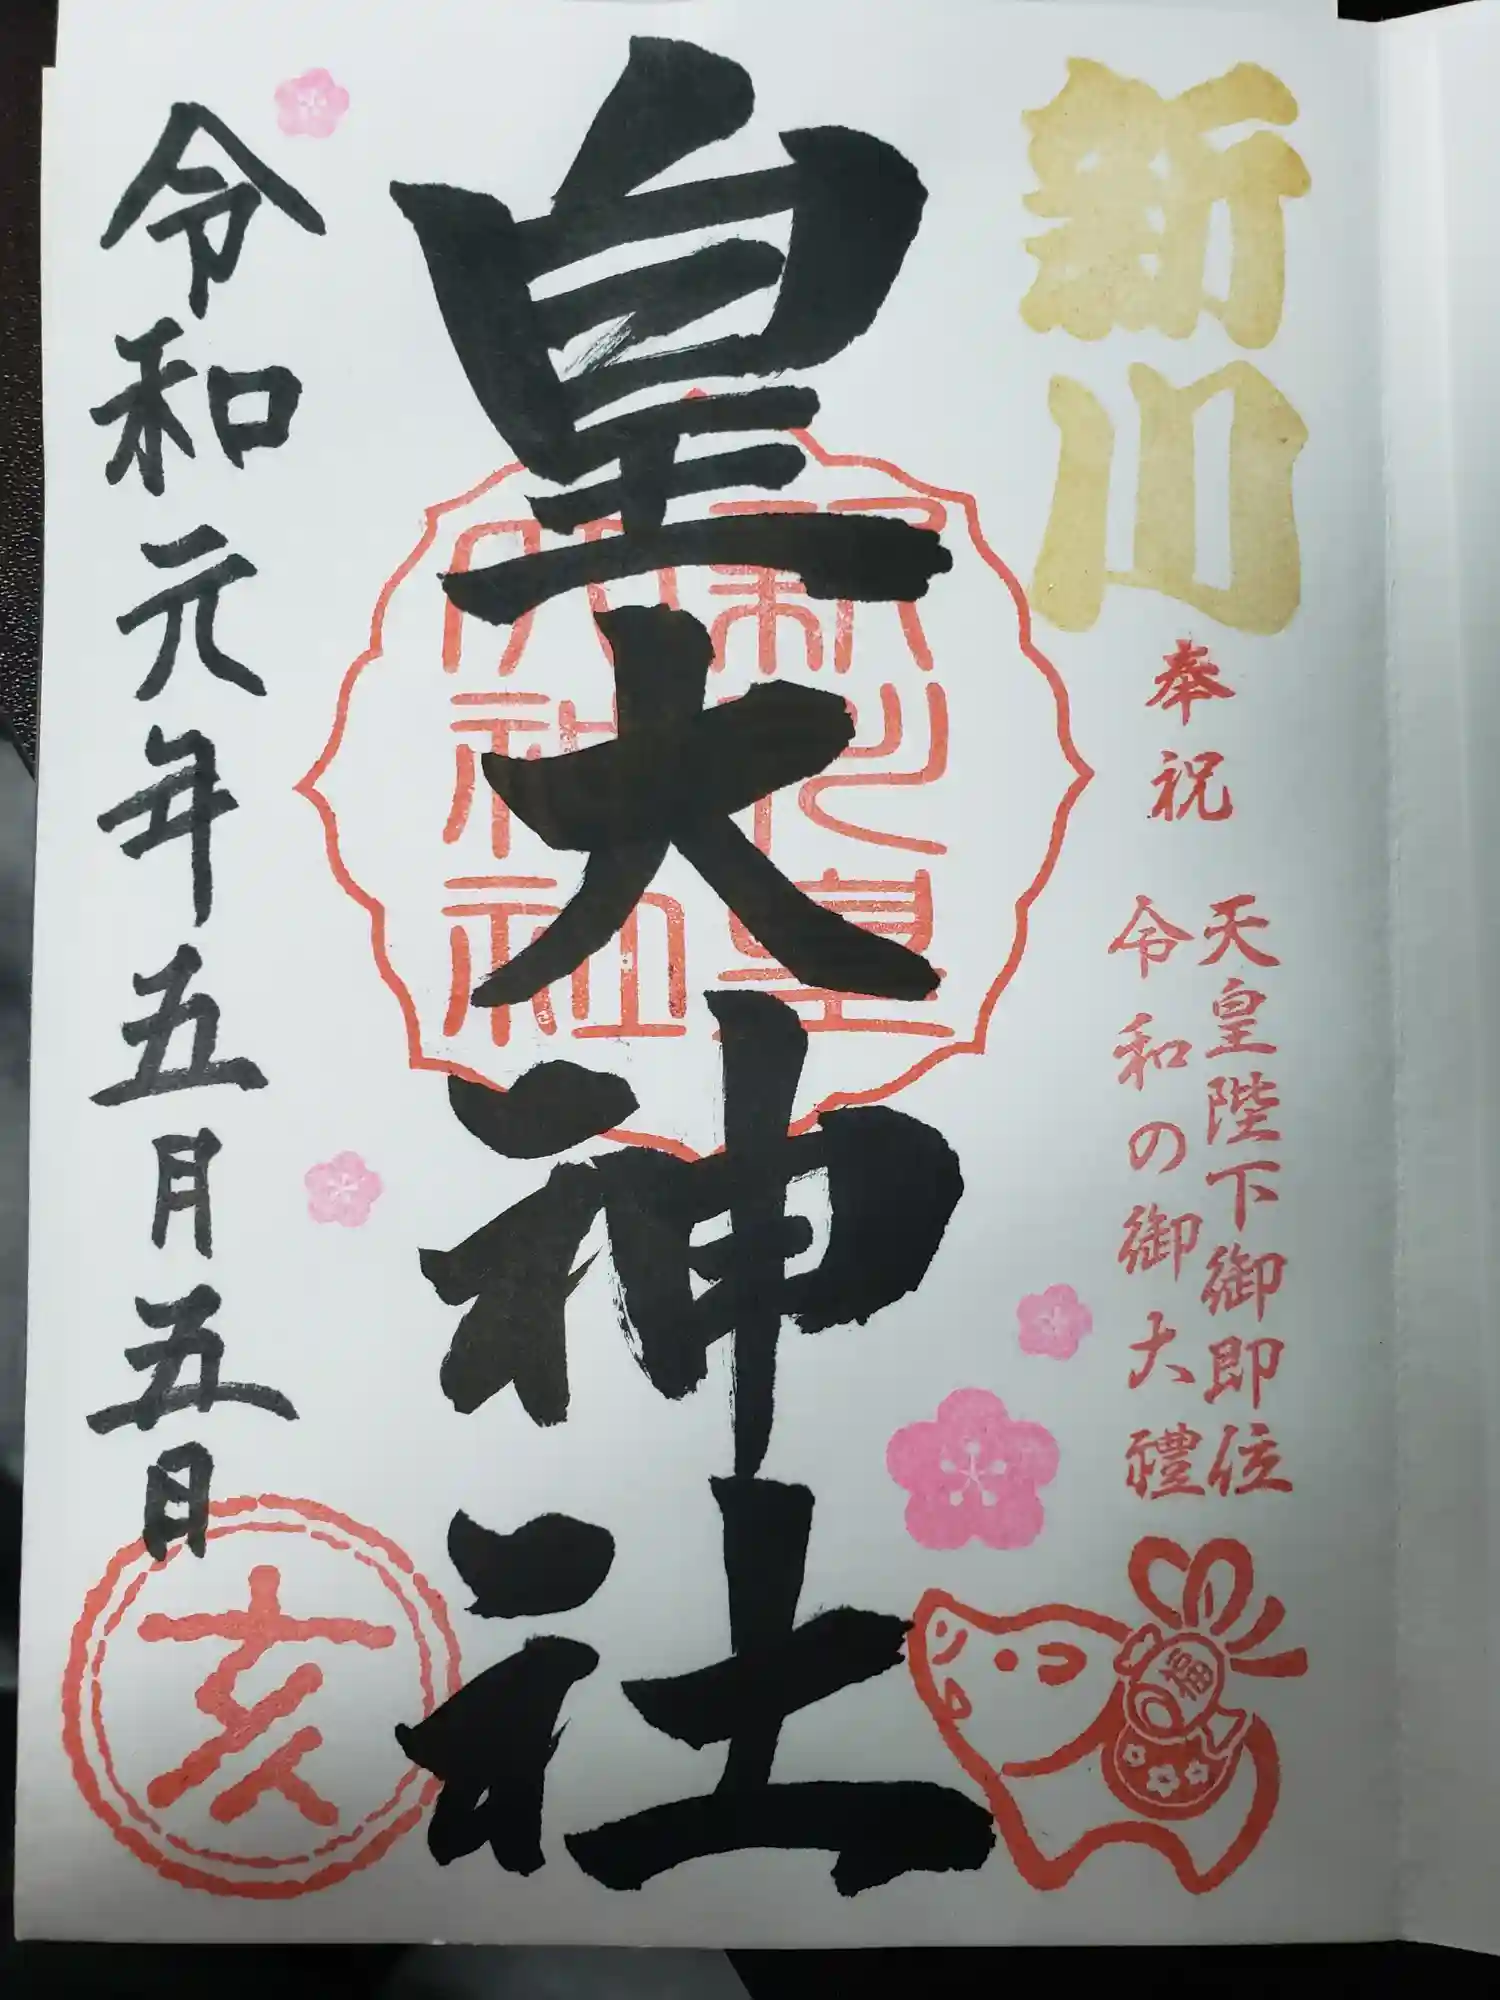 新川
奉祝
天皇陛下御即位
令和の御大禮
福
皇大神社
新川皇
大神社
令和元年五月五日
亥